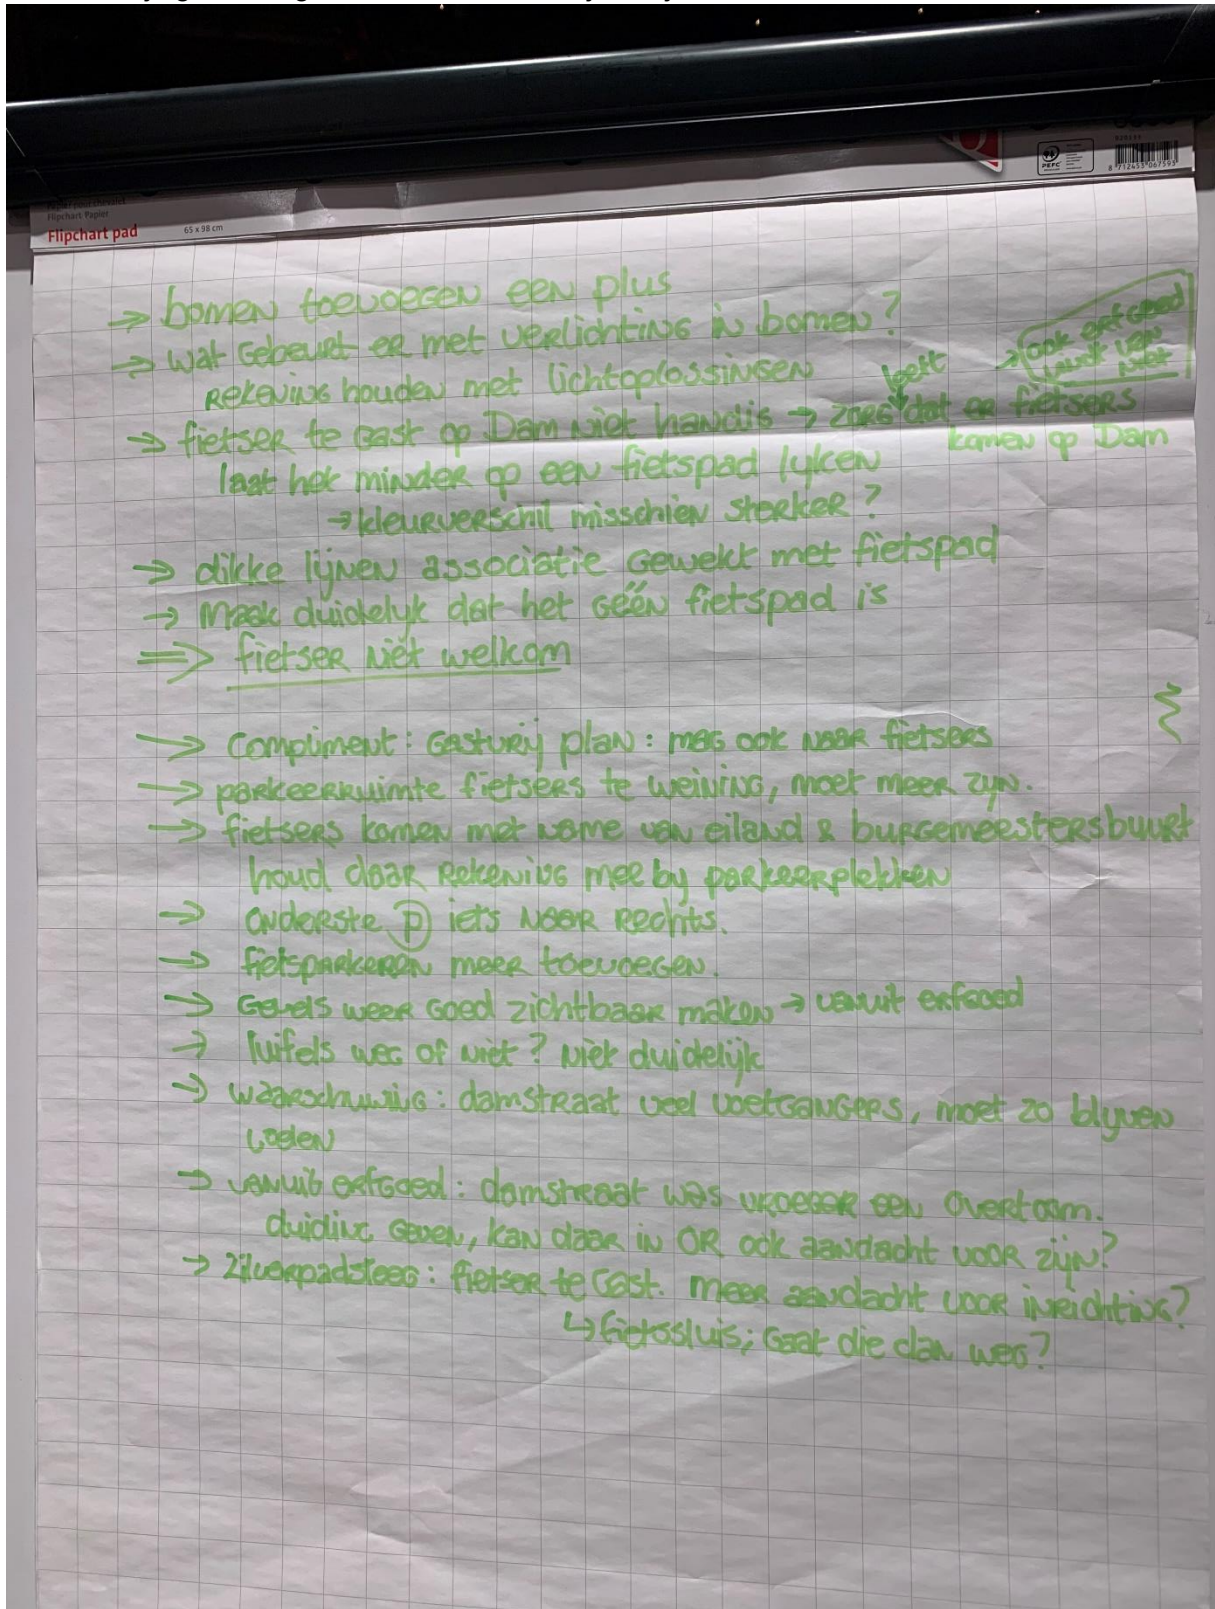 Flipchart Papier
Flipchart pad
65 x 98 cm
PEFC
8 712453 067593
→ bomen toevoegen een plus
→ wat gebeurt er met verlichting in bomen?
rekening houden met lichtoplossingen
→ ook erfgoed
niet
→ fietser te gast op Dam niet handig → zorg dat er fietsers
komen op Dam
laat het minder op een fietspad lyken
→ kleurverschil misschien sterker?
→ dikke lijnen associatie gewekt met fietspad
→ Maak duidelyk dat het géén fietspad is
⇒ fietser niet welkom
→ Compliment: Gastvrij plan: mag ook naar fietsers
→ parkeerruimte fietsers te weining, moet meer zyn.
→ fietsers komen met name van eiland & burgemeestersbuurt
houd daar rekening mee by parkeerplekken
→ onderste P iets naar rechts.
→ fietsparkeren meer toevoegen.
→ Gevels weer goed zichtbaar maken → vanuit erfgoed
→ luifels weg of niet? niet duidelijk
→ waarschuwing: damstraat veel voetgangers, moet zo blyven
voelen
→ vanuit erfgoed: damstraat was vroeger een overtoom.
duiding geven, kan daar in OR ook aandacht voor zijn?
→ Zilverpadsteeg: fietser te gast. meer aandacht voor inrichting?
↳ fietssluis; gaat die dan weg?